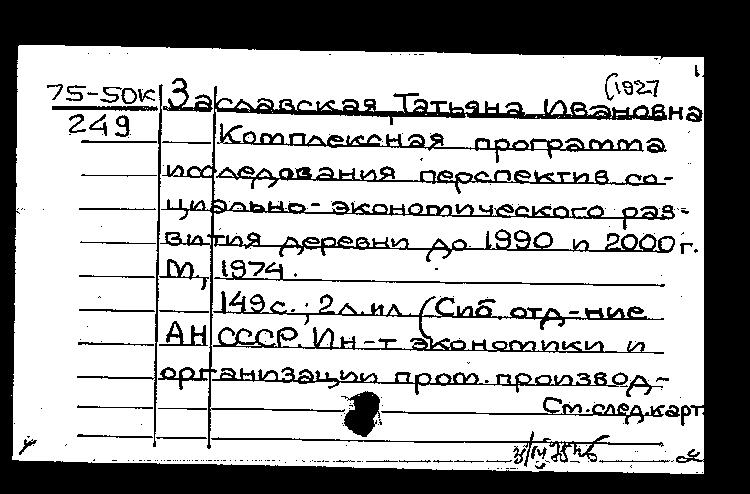 (1927
75-50к Заславская, Татьяна Ивановна
249 Комплексная программа
исследования перспектив со-
циально-экономического раз-
вития деревни до 1990 и 2000г.
М., 1974.
149с.; 2л.ил. (Сиб. отд-ние
АН СССР. Ин-т экономики и
организации пром. производ-
См.след.карт.